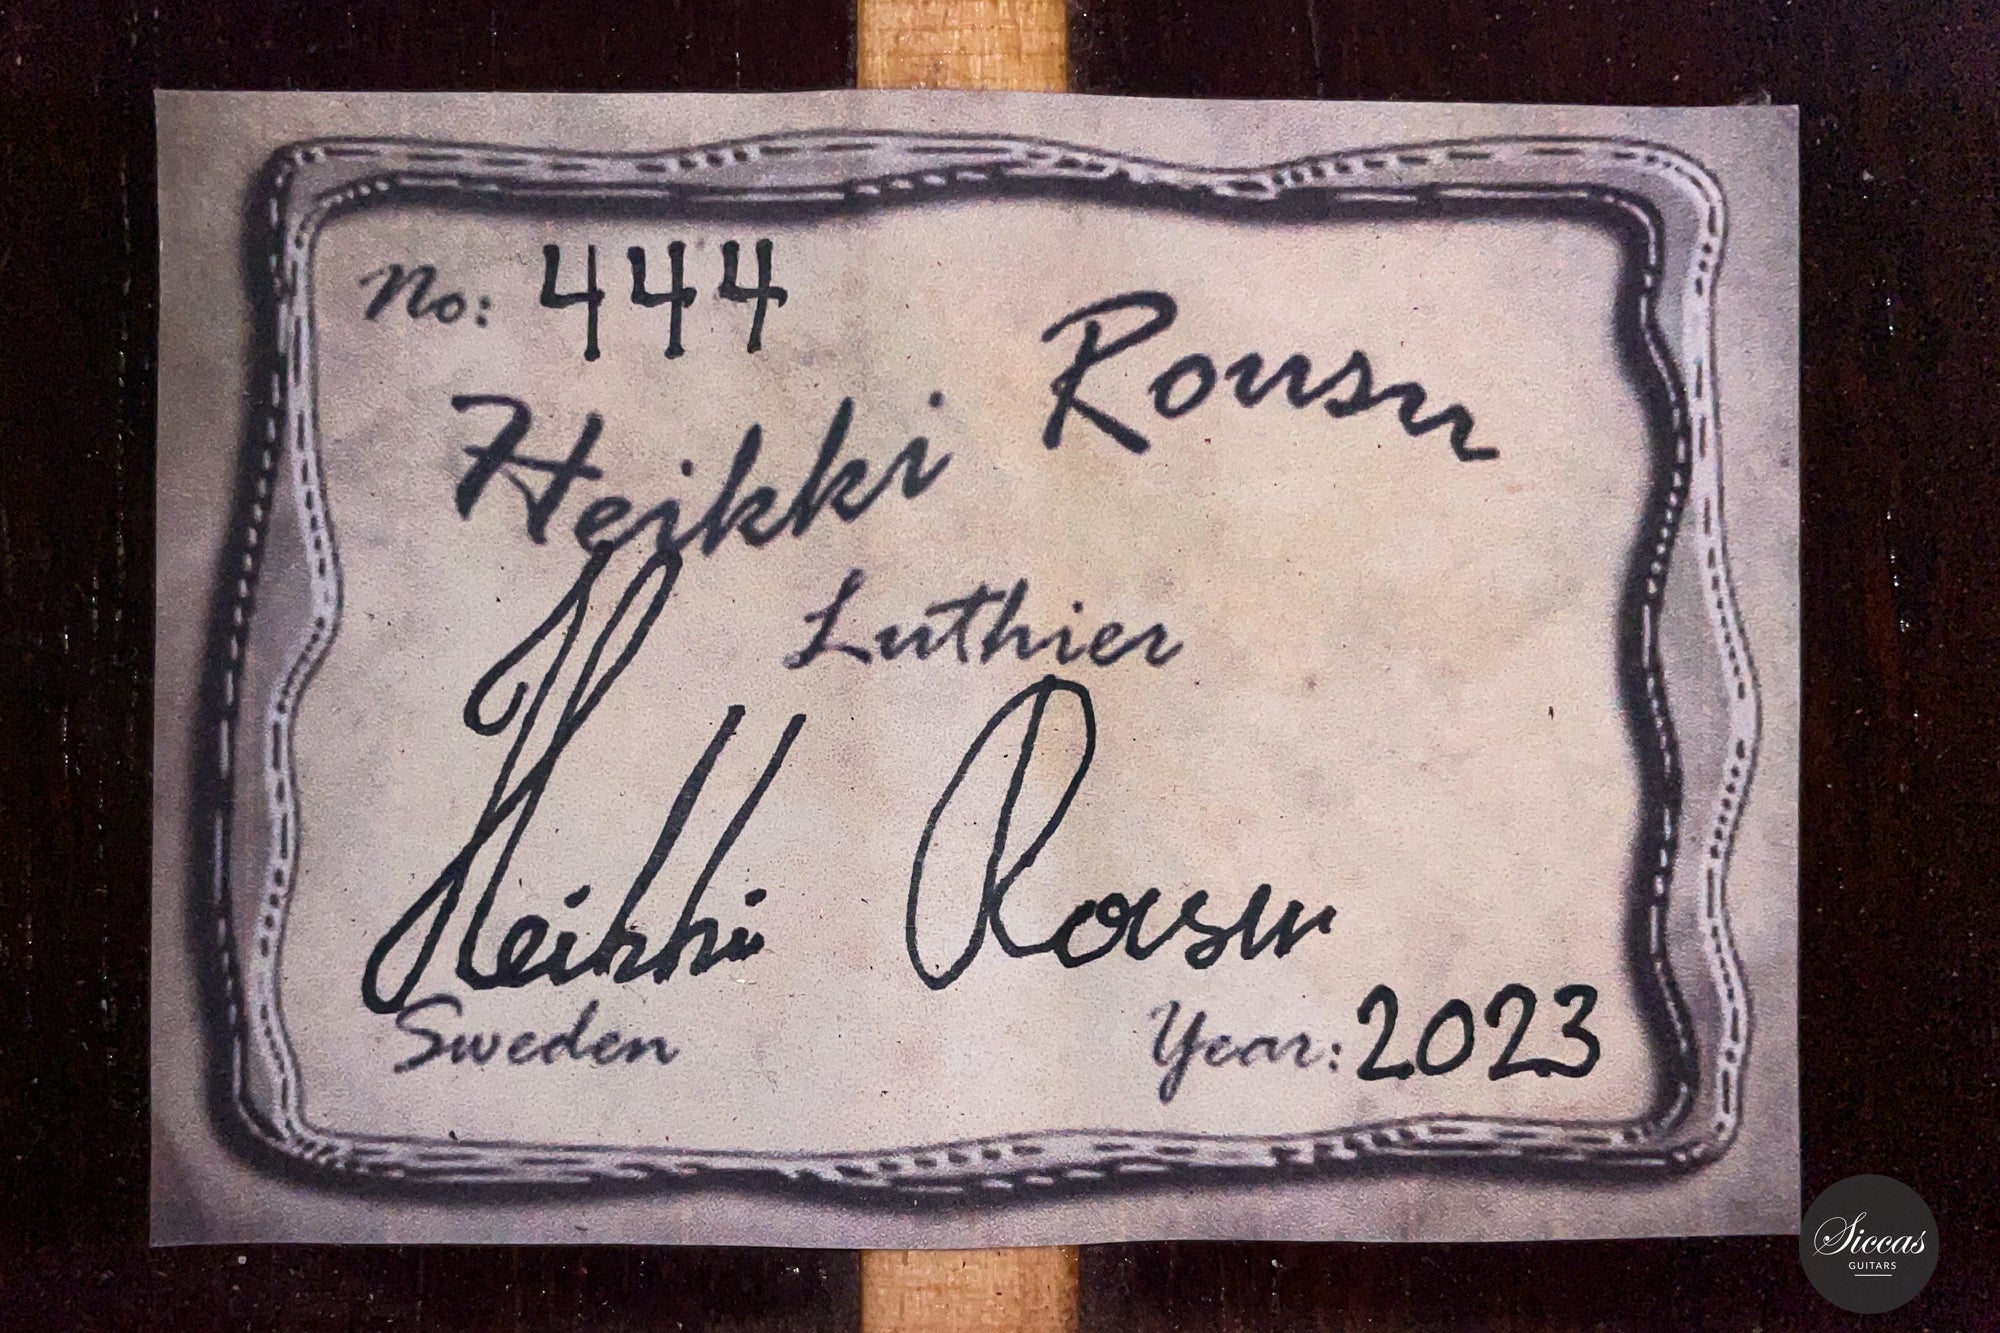 No: 444
Heikki Rousu
Luthier
Heikki Rousu
Sweden
Year: 2023
Siccas
GUITARS